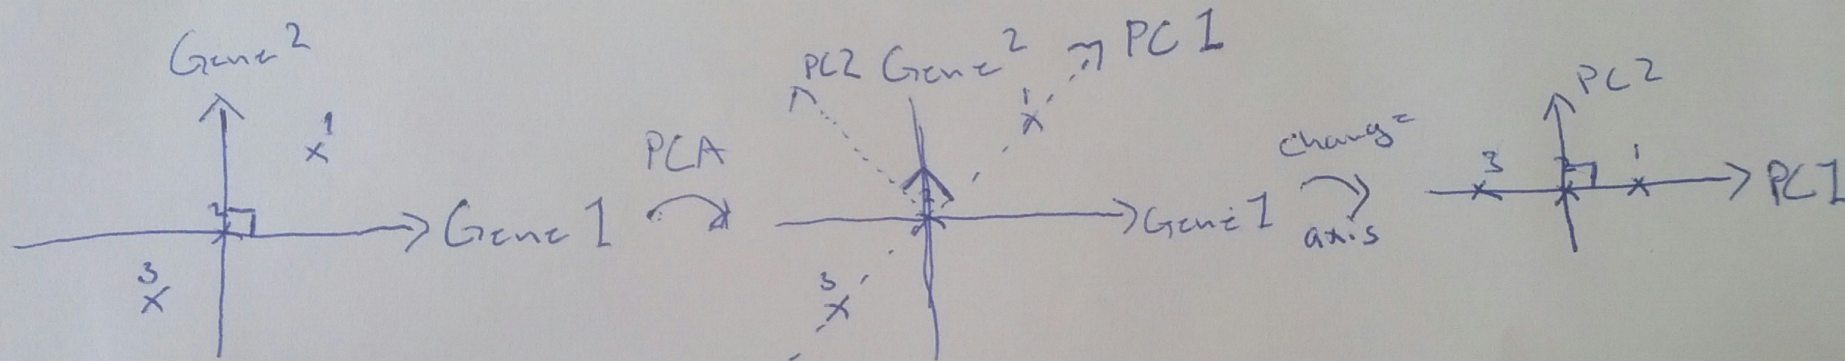 Gene 2
1
2
3
Gene 1
PCA
PC2 Gene 2
PC1
1
3
Gene 1
change
axis
PC2
3
2
1
PC1